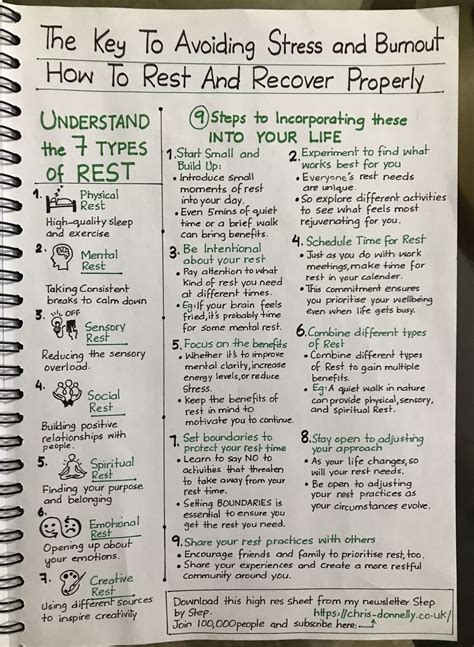 The Key To Avoiding Stress and Burnout
How To Rest And Recover Properly
UNDERSTAND
the 7 TYPES
of REST
1. Physical
Rest
High-quality sleep
and exercise
2. Mental
Rest
Taking Consistent
breaks to calm down
3. OFF
Sensory
Rest
Reducing the sensory
overload.
4. Social
Rest
Building positive
relationships with
people.
5. Spiritual
Rest
Finding your purpose
and belonging
6. Emotional
Rest
Opening up about
your emotions.
7. Creative
Rest
Using different sources
to inspire creativity
9 Steps to Incorporating these
INTO YOUR LIFE
1. Start Small and
Build Up:
• Introduce small
moments of rest
into your day.
• Even 5mins of quiet
time or a brief walk
can bring benefits.
2. Experiment to find what
works best for you
• Everyone's rest needs
are unique.
• So explore different activities
to see what feels most
rejuvenating for you.
3. Be Intentional
about your rest
• Pay attention to what
kind of rest you need
at different times.
• Eg: If your brain feels
fried, it's probably time
for some mental rest.
4. Schedule Time for Rest
• Just as you do with work
meetings, make time for
rest in your calender.
• This commitment ensures
you prioritise your wellbeing
even when life gets busy.
5. Focus on the benefits
• Whether it's to improve
mental clarity, increase
energy levels, or reduce
Stress.
• Keep the benefits of
rest in mind to
motivate you to continue.
6. Combine different types
of Rest
• Combine different types
of Rest to gain multiple
benefits.
• Eg: A quiet walk in nature
can provide physical, sensory,
and spiritual Rest.
7. Set boundaries to
protect your rest time
• Learn to say NO to
activities that threaten
to take away from your
rest time.
• Setting BOUNDARIES is
essential to ensure you
get the rest you need.
8. Stay open to adjusting
your approach
• As your life changes, so
will your rest needs.
• Be open to adjusting
your rest practices as
your circumstances evolve.
9. Share your rest practices with others
• Encourage friends and family to prioritise rest, too.
• Share your experiences and create a more restful
community around you.
Download this high res sheet from my newsletter Step
by Step. https://chris-donnelly.co.uk/
Join 100,000 people and subscribe here: